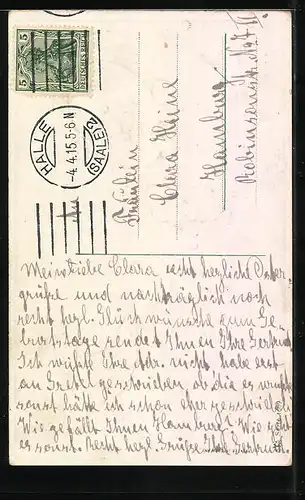 5
5
DEUTSCHES REICH
HALLE
-4.4.15 5-6N
(SAALE) 2
An
Fräulein
Clara Heine
Hamburg
Meine liebe Clara recht herzliche Oster-
grüße und nachträglich noch
recht herzl. Glückwünsche zum Ge-
burtstage sendet Ihnen Ihre Gertrud.
Ich wußte Ihre Adr. nicht habe erst
an Gretel geschrieben ob die es wußte
sonst hätte ich schon eher geschrieben.
Wie gefällt Ihnen Hamburg? Wie geht
es sonst. Recht herzl. Grüße Ihre Gertrud.